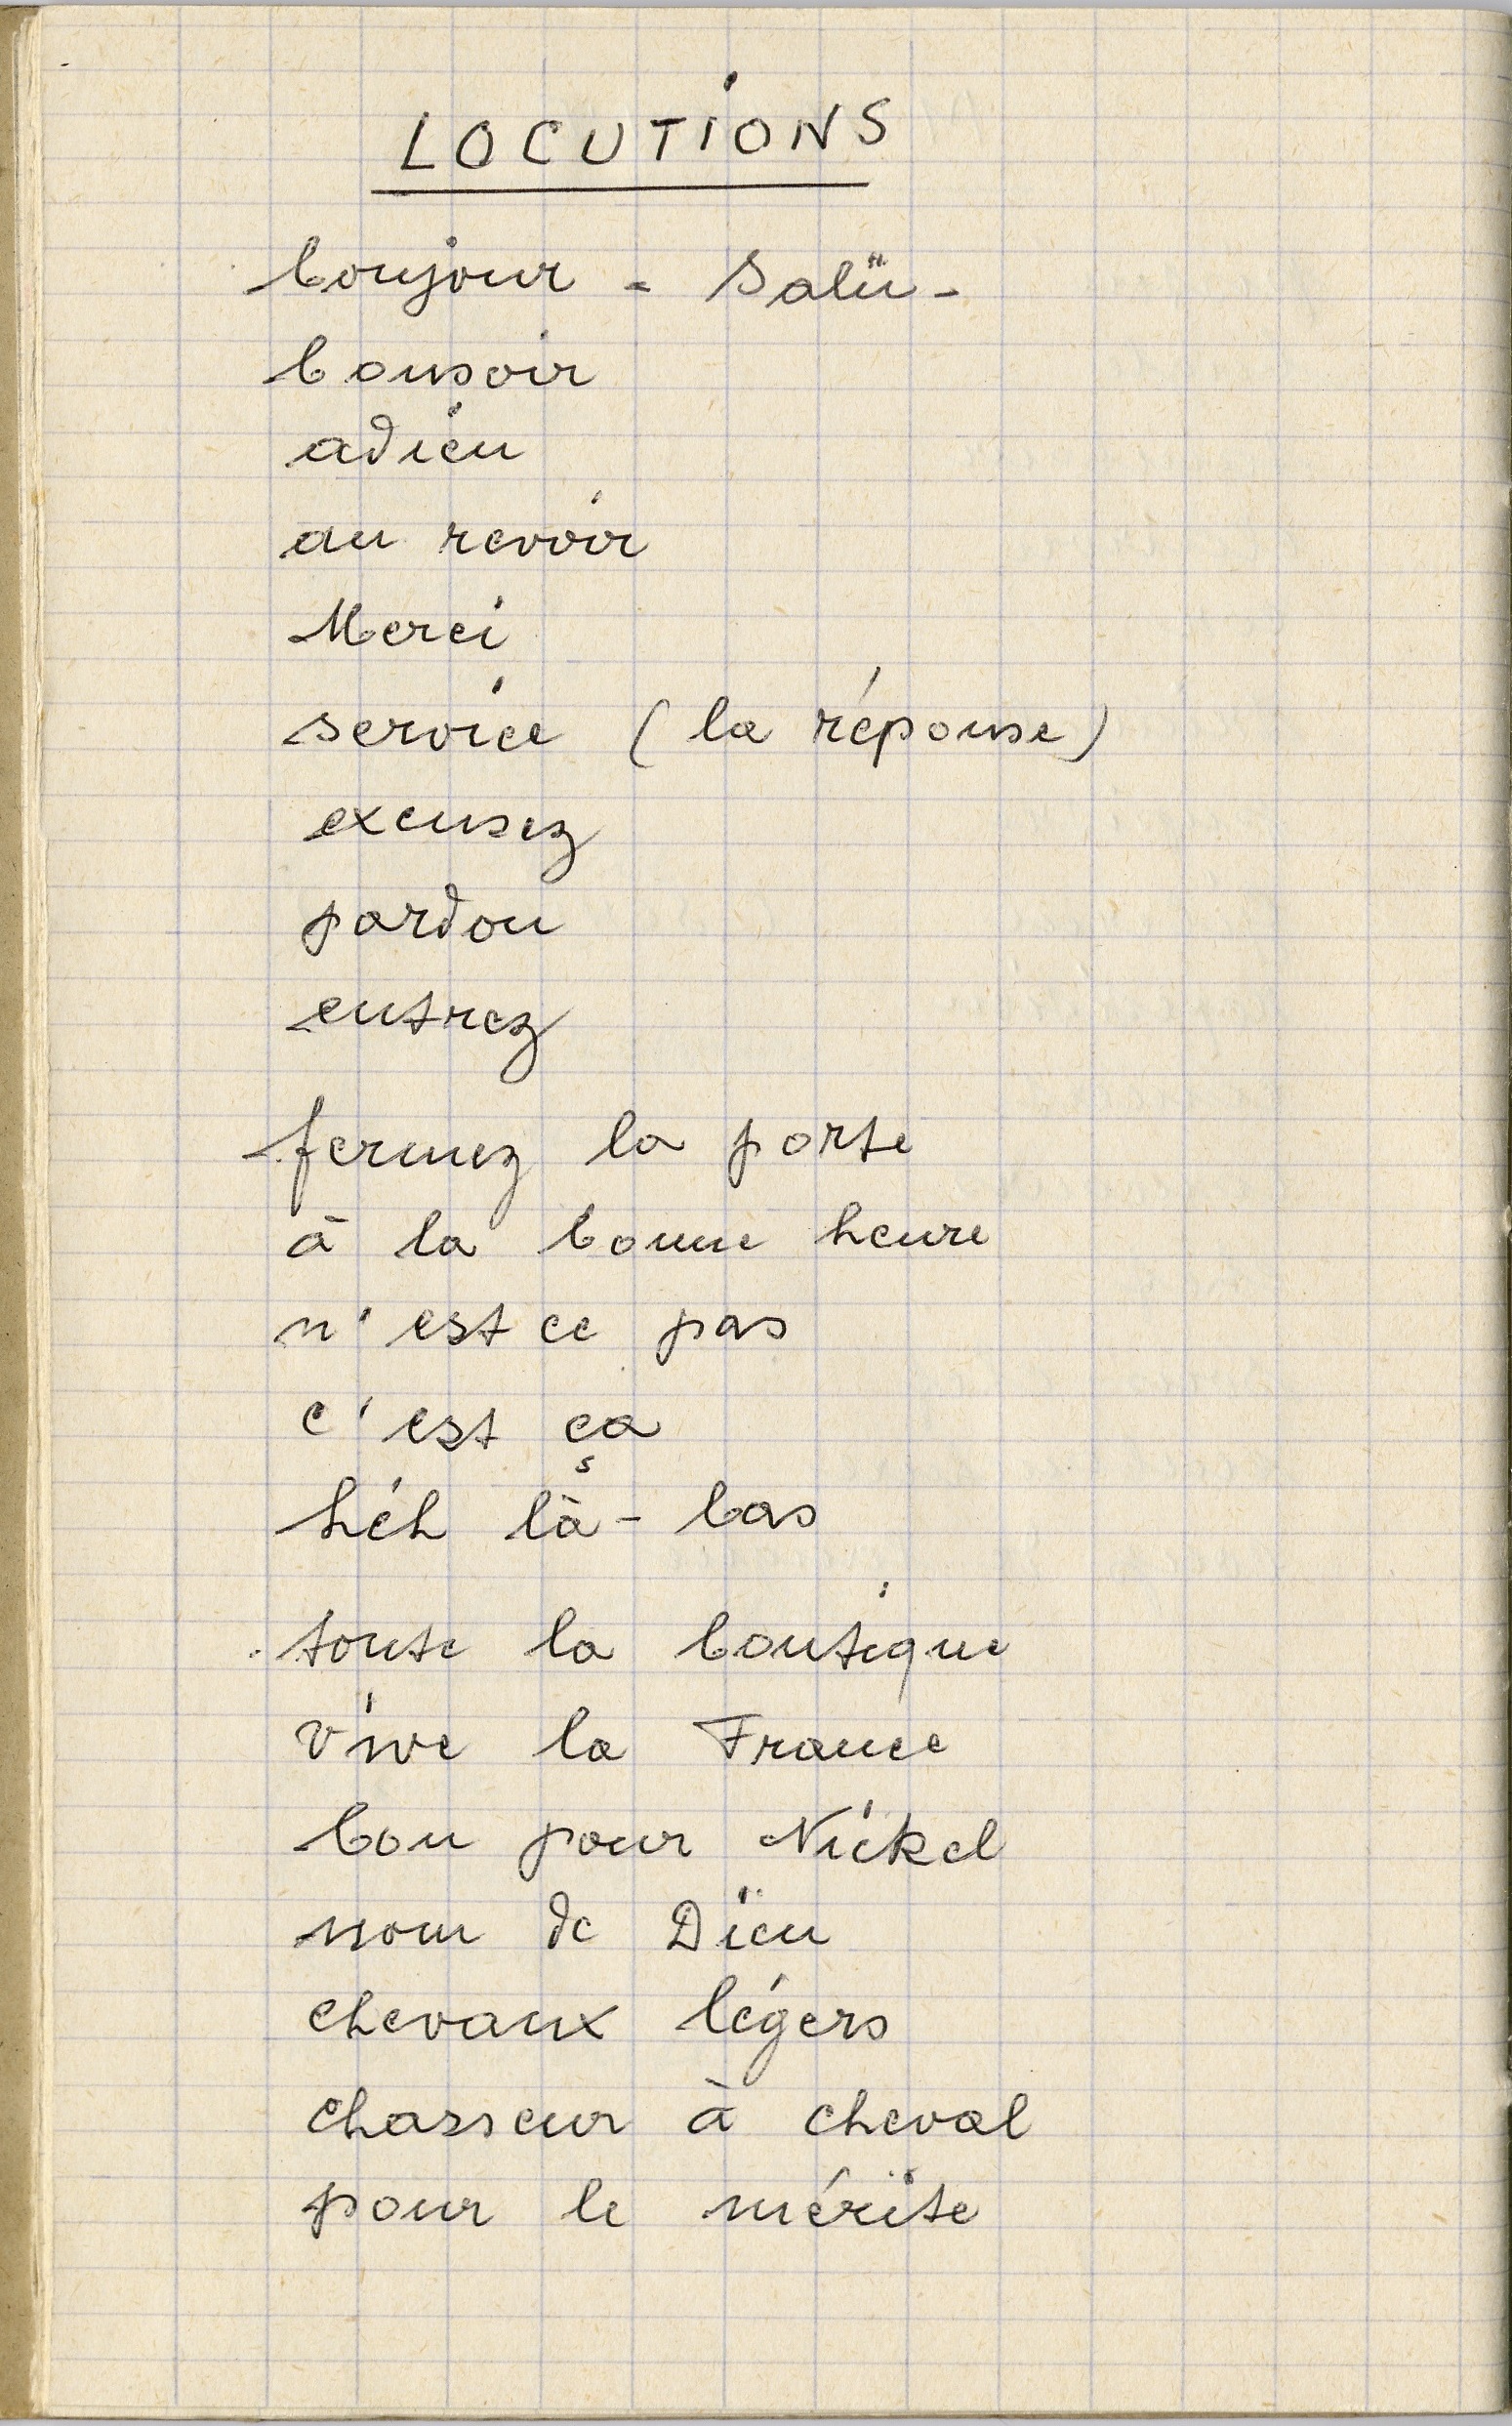 LOCUTIONS
bonjour - Salü -
bonsoir
adieu
au revoir
Merci
service (la réponse)
excusez
pardon
entrez
fermez la porte
à la bonne heure
n'est ce pas
c'est ça
héh là-bas
toute la boutique
vive la France
bon pour Nickel
nom de Dieu
chevaux légers
chasseur à cheval
pour le mérite